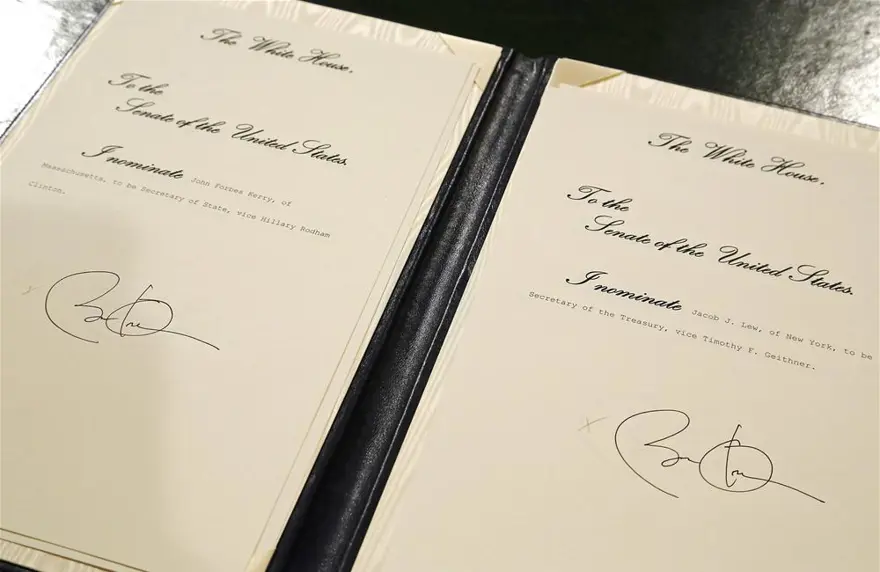 The White House.
To the
Senate of the United States.
I nominate John Forbes Kerry, of
Massachusetts, to be Secretary of State, vice Hillary Rodham
Clinton.
x
The White House.
To the
Senate of the United States.
I nominate Jacob J. Lew, of New York, to be
Secretary of the Treasury, vice Timothy F. Geithner.
x